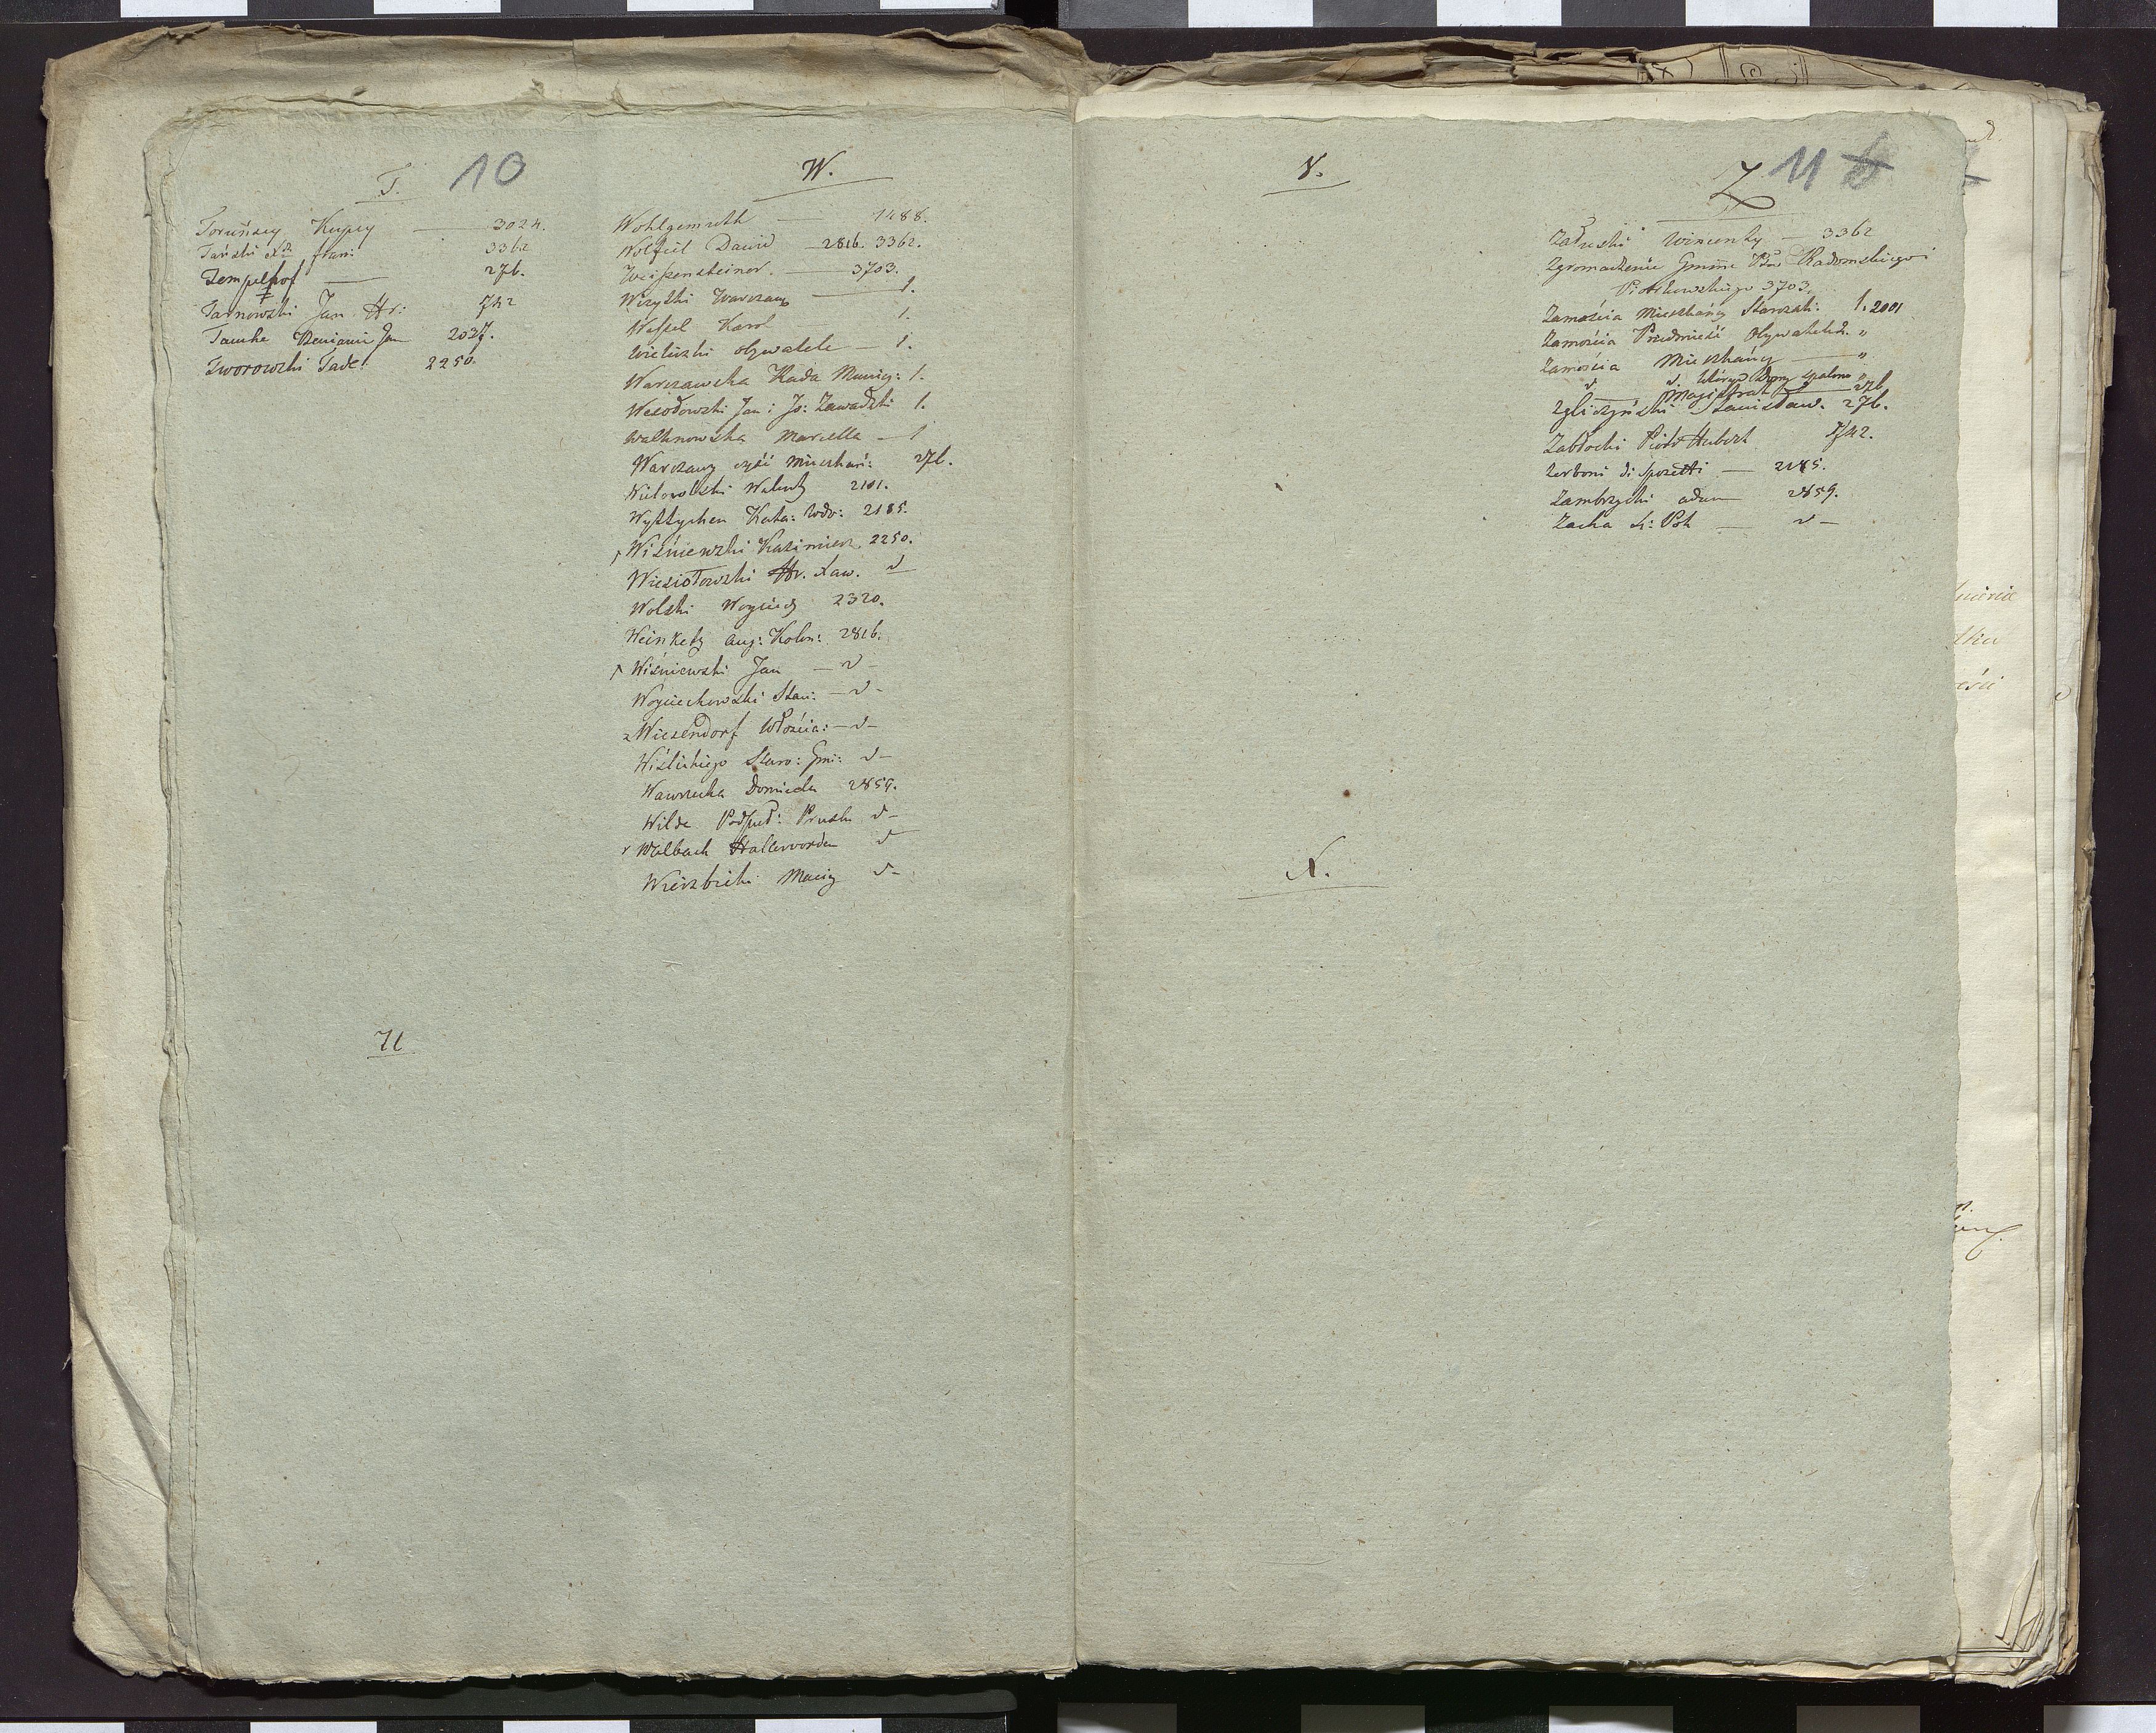 10
T.
Toruńscy Kupcy — 3024.
Tański Xdz fran: 3362
Tempelhof — 276.
Tarnowski Jan Hr: 742
Tamke Beniamin Jan 2037.
Tworowski Tade: 2250.
U
W.
Wohlgemuth — 1488.
Wolfiel Dawid — 2816. 3362.
Weissensteiner. — 3703.
Wizytki Warszaws — 1.
Wessel Karol — 1.
Wieluski obywatele — 1.
Warszawska Rada Municy: 1.
Wesołowski Jan i Jo: Zawadzki 1.
Walknowska Marcella — 1
Warszawy część Mieszkań: 276.
Wielowolski Walenty 2101.
Wyttychen Kata: Wdo: 2185.
Wiśniewski Kazimierz 2250.
Wiesiołowski Hr. Xaw. v
Wolski Woyciech 2320.
Weinketz Aug: Kolon: 2816.
Wiśniewski Jan — v —
Woyciechowski Stan: — v —
Wiesendorf Włościa: — v —
Wiślickiego Staro: Gmi: v —
Wawrzecka Domicela 2859.
Wilde Podpuł: Prusk v —
Walbach Hallervorden v
Wierzbicki Maciey v —
Y.
X.
11
Z
Załuski Wincenty — 3362
Zgromadzenie Gminne Ptu Radomskiego i
Piotrkowskiego 3703.
Zamościa Mieszkańcy Starozak: 1. 2001
Zamościa Przedmieść Obywatele "
Zamościa Mieszkańcy — "
v v. których Domy spalono "
Magistrat — 276
Zgliczyński Stanisław. 276.
Zabłocki Piotr Hubert 1742.
Zerboni di Sposetti — 2185.
Zambrzycki adam 2859.
Zacha — v —